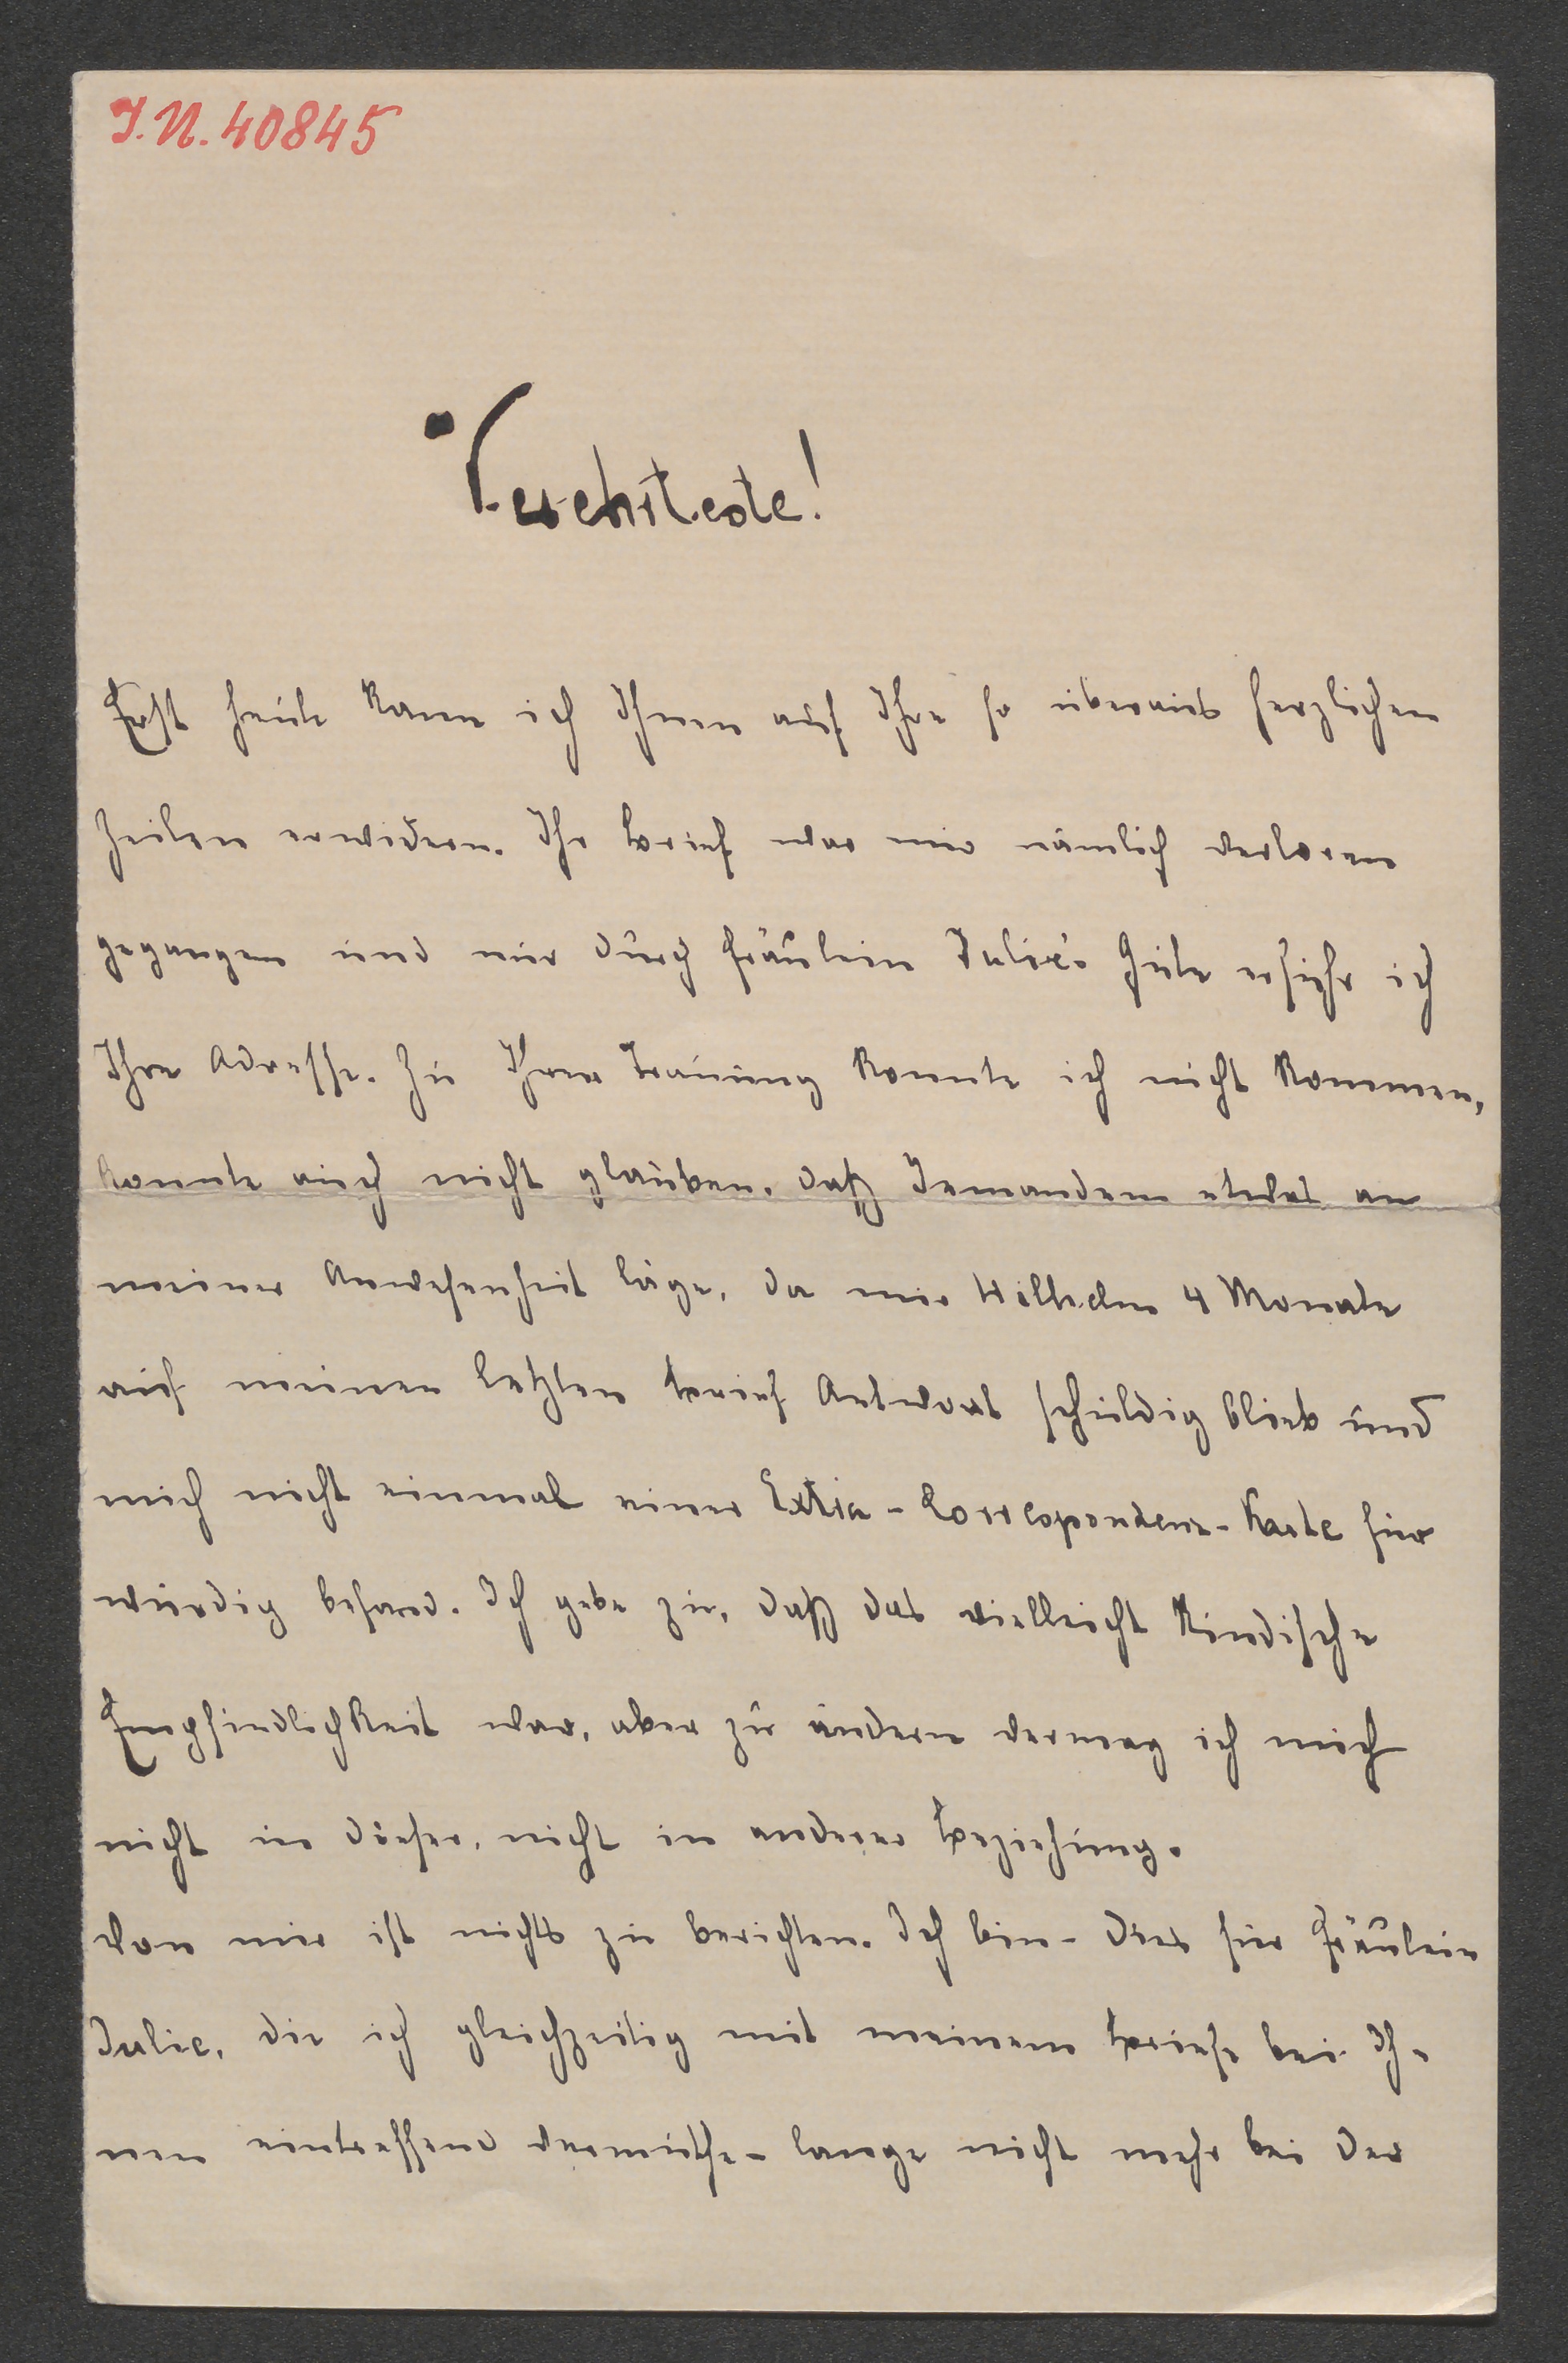 J.N. 40845
Verehrteste!
Erst heute kann ich Ihnen auf Ihre so überaus herzlichen
Zeilen erwidern. Ihr Brief war mir nämlich verloren
gegangen und nur durch Fräulein Julie's Güte erfuhr ich
Ihre Adresse. Zu Ihrer Trauung konnte ich nicht kommen,
konnte auch nicht glauben, daß Jemandem etwas an
meiner Anwesenheit läge, da mir Wilhelm 4 Monate
auf meinen letzten Brief Antwort schuldig blieb und
mich nicht einmal einer Extra-Correspondenz-Karte für
würdig befand. Ich gebe zu, daß das vielleicht kindische
Empfindlichkeit war, aber zu ändern vermag ich mich
nicht in dieser, nicht in anderer Beziehung.
Von mir ist nichts zu berichten. Ich bin - dies für Fräulein
Julie, die ich gleichzeitig mit meinem Briefe bei Ih-
nen eintreffend vermuthe - lange nicht mehr bei der